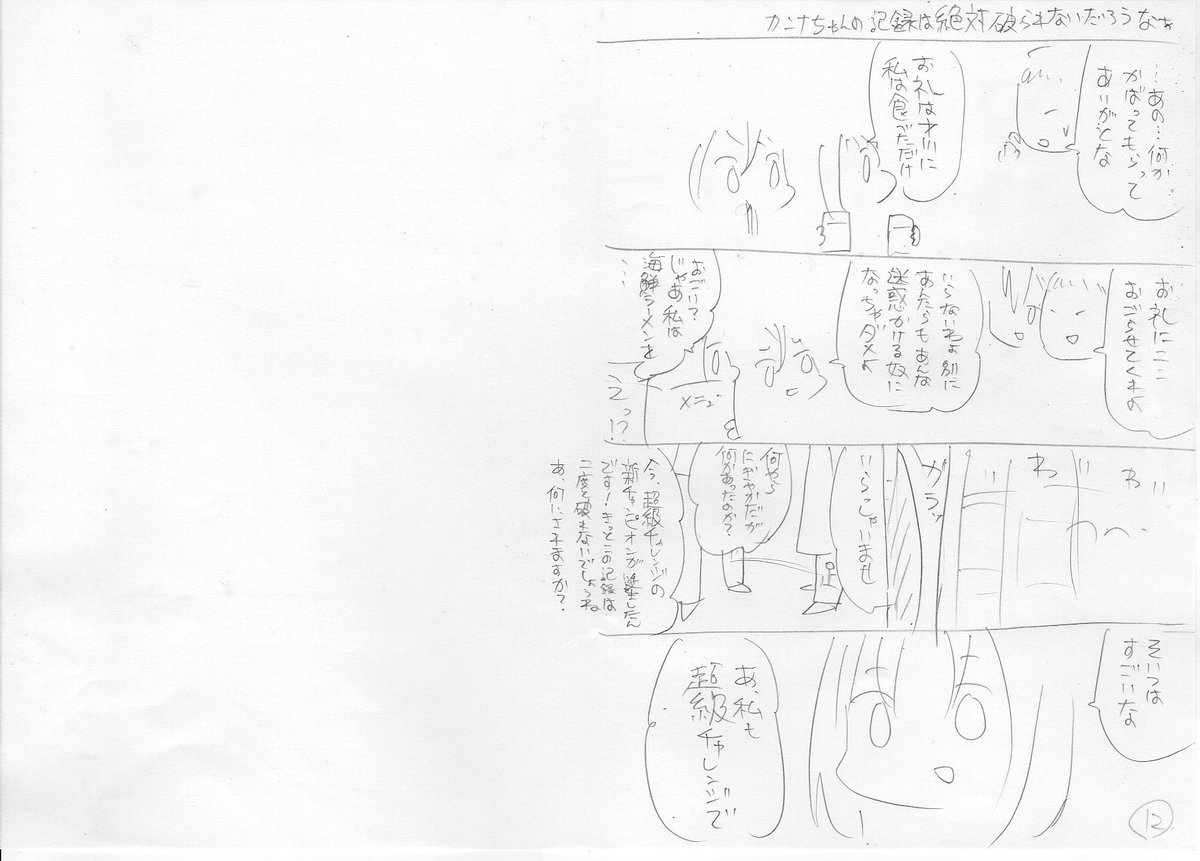 カンナちゃんの記録は絶対破られないだろうなぁ
…あの…何か
かばってもらって
ありがとな
お礼は才川に
私は食べただけ
お礼にここ
おごらせてくれよ
いらないわよ別に
あんたらもあんな
迷惑かける奴に
なっちゃダメよ
おごり?
じゃあ私は
海鮮ラーメンを
…
メニュー
えっ!?
わい
わい
ガラッ
いらっしゃいませ
何やら
にぎやかだが
何かあったのか?
今、超級チャレンジの
新チャンピオンが誕生したん
です!きっとこの記録は
二度と破れないでしょうね
あ、何にされますか?
そいつは
すごいな
あ、私も
超級チャレンジで
12